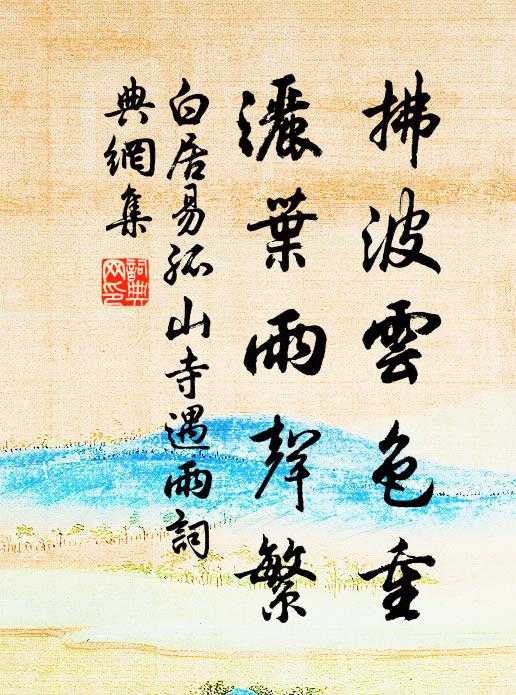 拂波雲色重
灑葉雨聲繁
白居易孤山寺遇雨詞
典網集
詞典網印